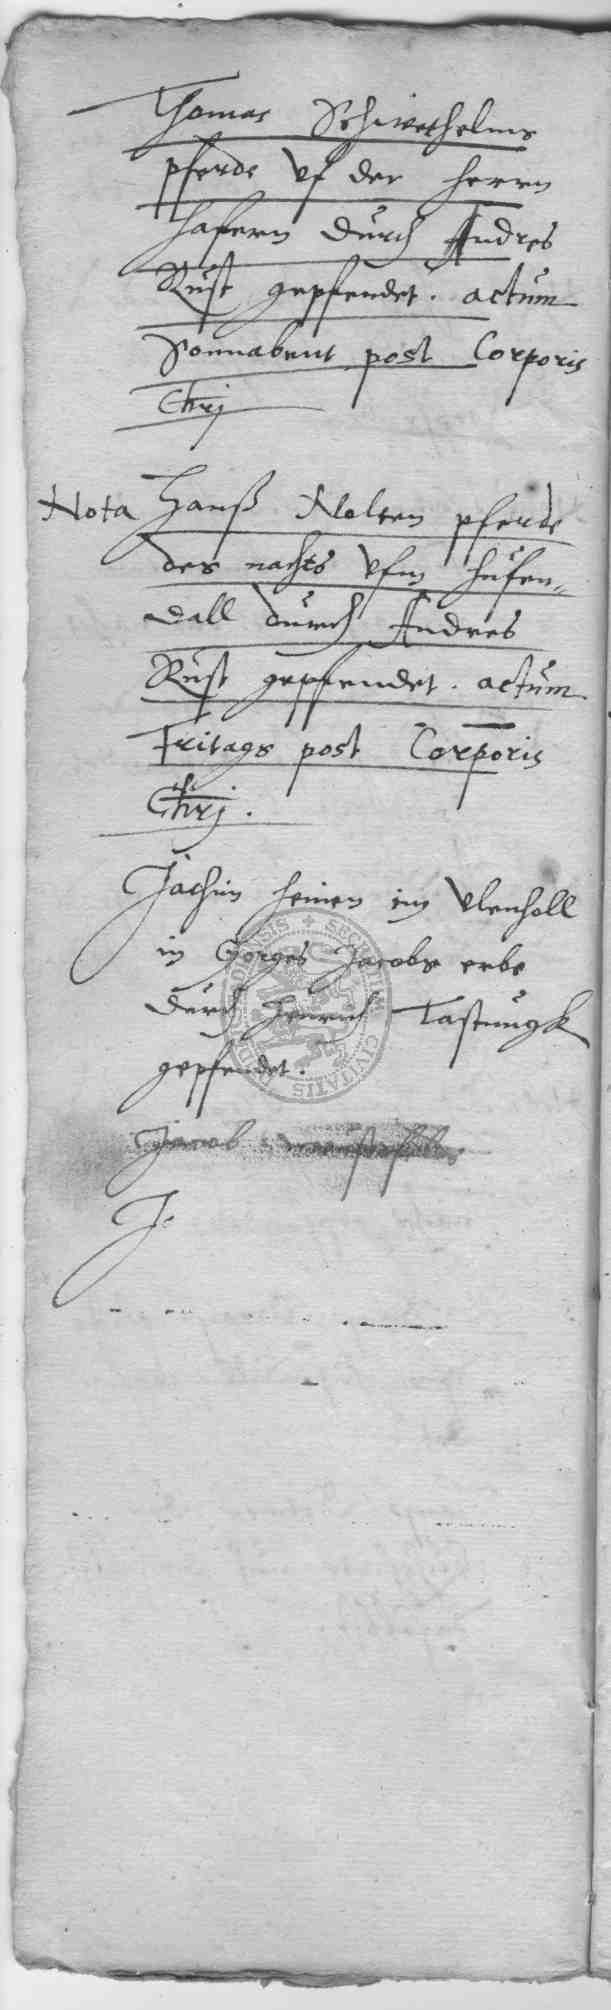 Thomas Schwethelms
pferde vf der herrn
hafern durch Andres
Rust gepfendet. actum
Sonnabent post Corporis
Chrj
Nota Hanß Nolten pferde
des nachts vfm hufen„
dall durch Andres
Rust gepfendet. actum
Fritags post Corporis
Chrj.
Jachim heinen im Vlenholl
in Gorges Jacobs erbe
durch Henrich Tastungk
gepfendet.
Jacob
J.
SECRETUM CIVITATIS